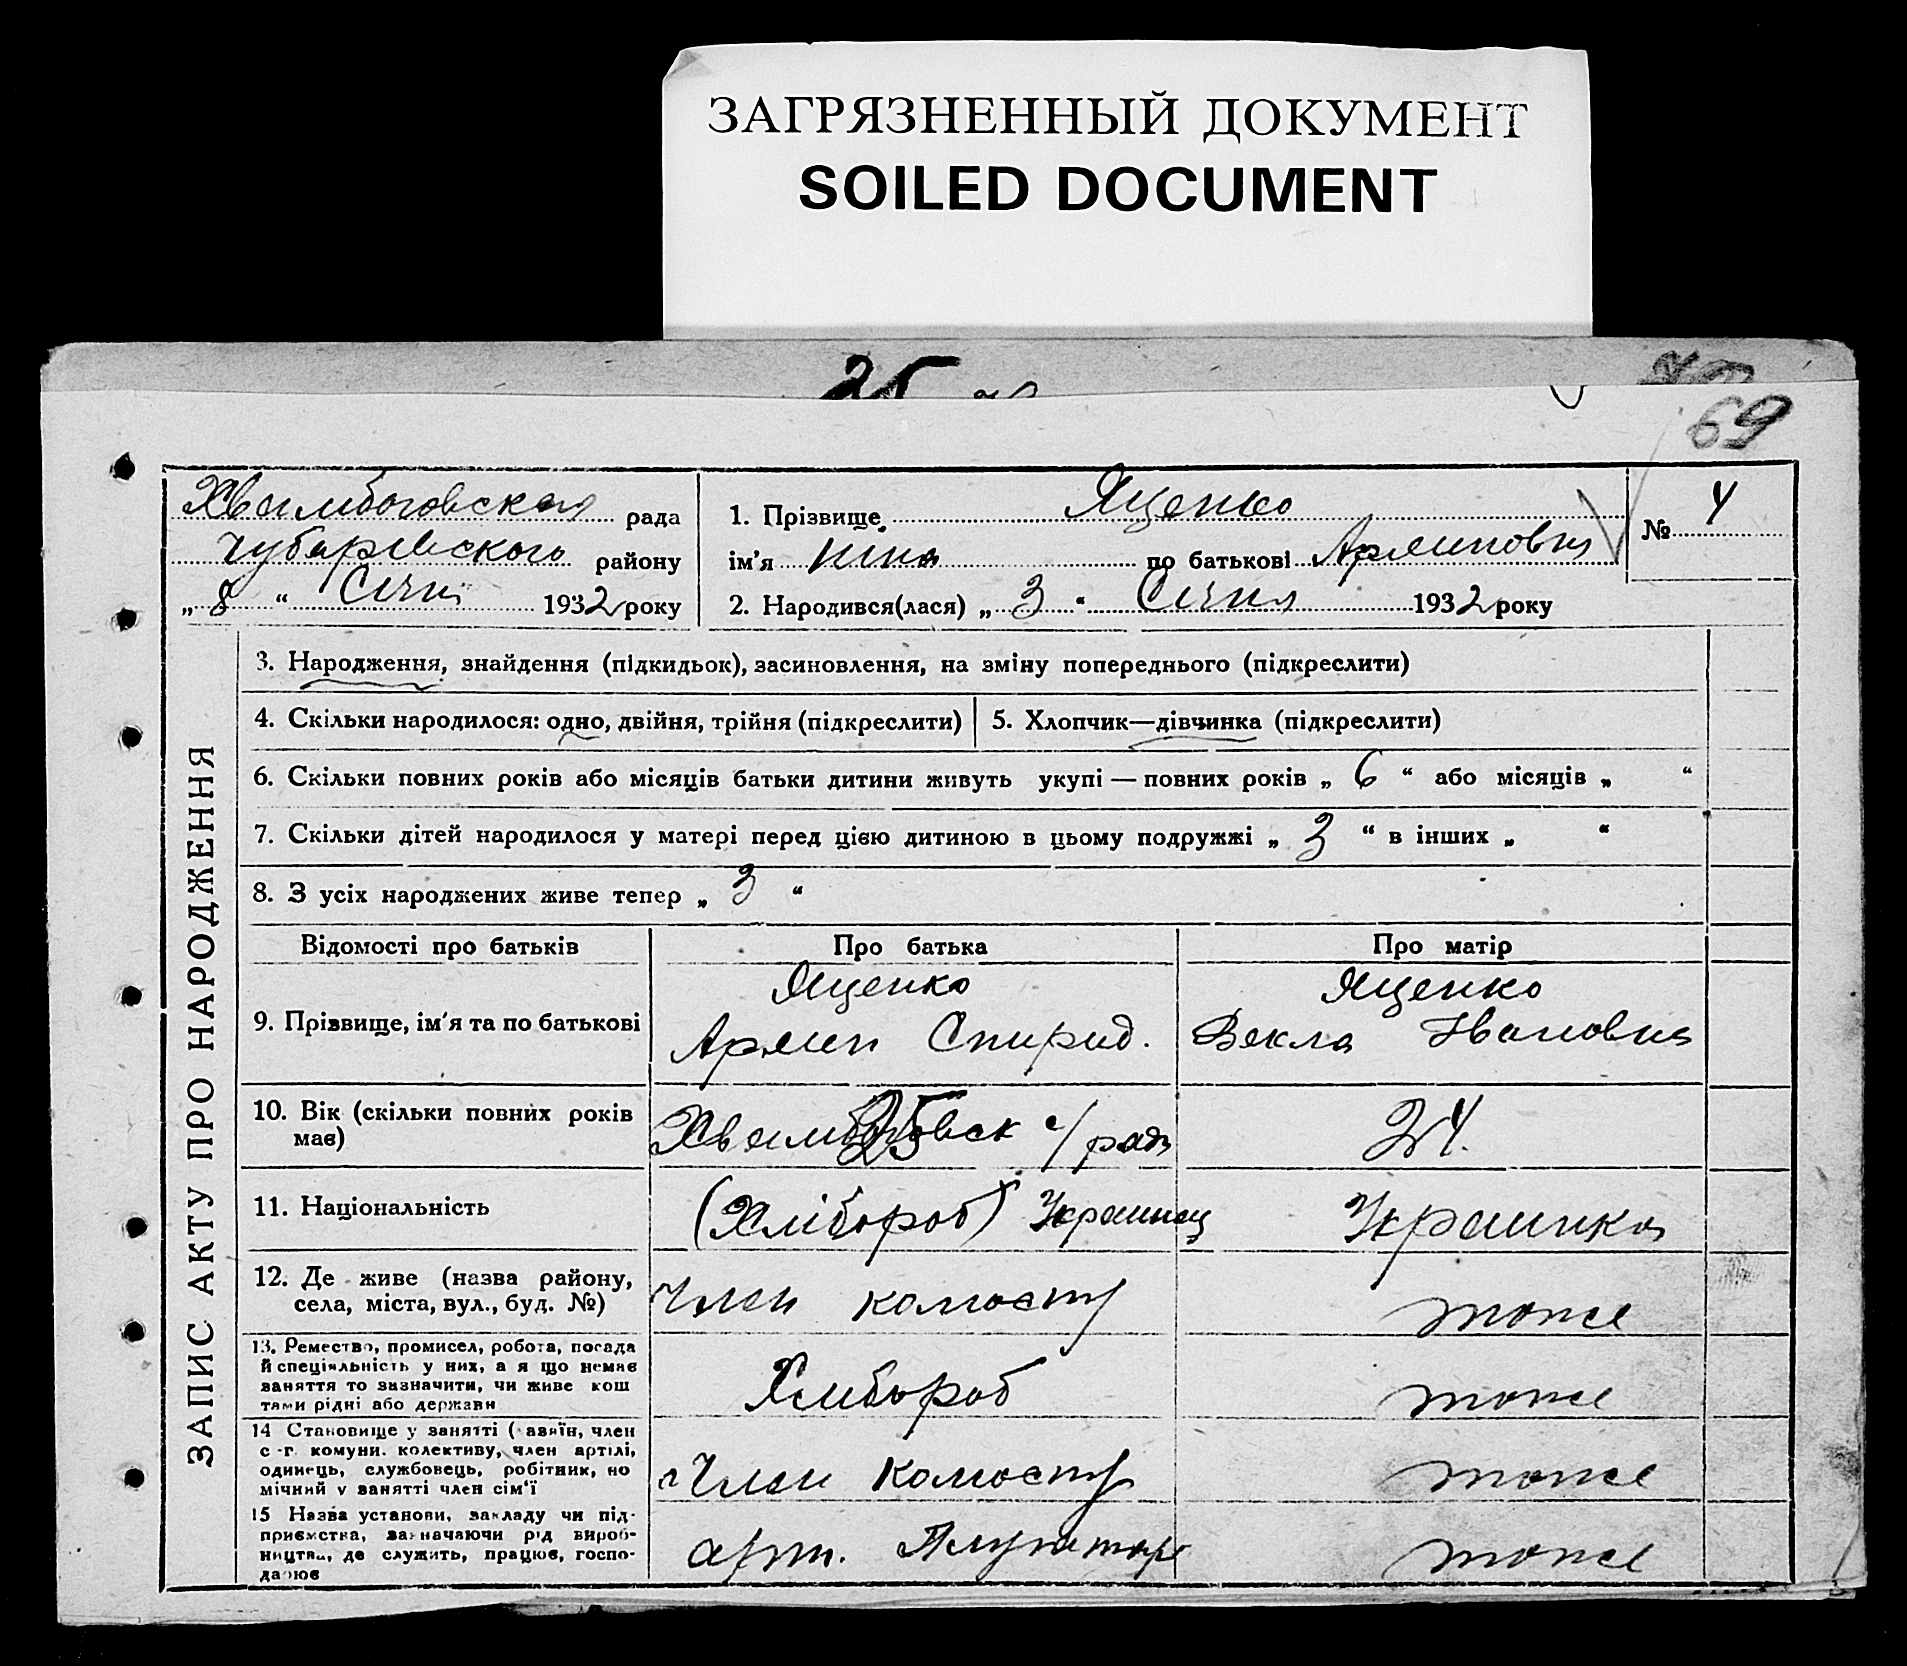 ЗАГРЯЗНЕННЫЙ ДОКУМЕНТ
SOILED DOCUMENT
25
69
рада
Чубарівского району
„ 8 “ Січня 1932 року
1. Прізвище Яценко
ім'я Ніна по батькові
2. Народився(лася) „ 3 “ Січня 1932 року
№ 4
ЗАПИС АКТУ ПРО НАРОДЖЕННЯ
3. Народження, знайдення (підкидьок), засиновлення, на зміну попереднього (підкреслити)
4. Скільки народилося: одно, двійня, трійня (підкреслити)
5. Хлопчик—дівчинка (підкреслити)
6. Скільки повних років або місяців батьки дитини живуть укупі — повних років „ 6 “ або місяців „ “
7. Скільки дітей народилося у матері перед цією дитиною в цьому подружжі „ 3 “ в інших „ “
8. З усіх народжених живе тепер „ 3 “
Відомості про батьків
Про батька
Про матір
9. Прізвище, ім'я та по батькові
Яценко
Спирид.
Яценко
Векла Ивановна
10. Вік (скільки повних років
має)
25
с/рада
24.
11. Національність
(Хлібороб) Украинец
Украинка
12. Де живе (назва району,
села, міста, вул., буд. №)
Член
тоже
13. Ремество, промисел, робота, посада
й спеціяльність у них, а я що немає
заняття то зазначити, чи живе кош
тами рідні або держави
Хлибороб
тоже
14 Становище у занятті (хазяїн, член
с-г. комуни. колективу, член артілі,
одинець, службовець, робітник, по
мічний у занятті член сім'ї
Член
тоже
15 Назва установи, закладу чи під-
приємства, зазначаючи рід вироб-
ництва, де служить, працює, госпо-
дарює
арт.
тоже